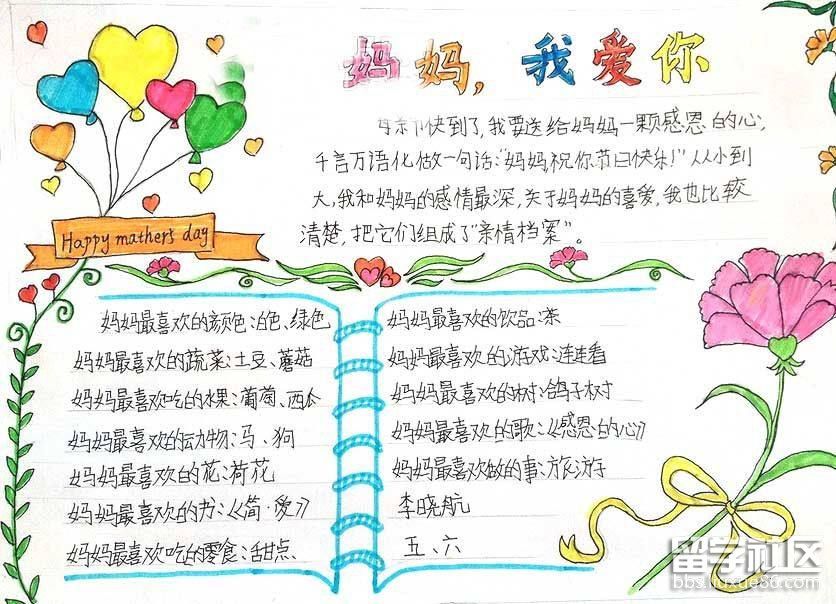 妈妈，我爱你
母亲节快到了，我要送给妈妈一颗感恩的心，
千言万语化做一句话："妈妈，祝你节日快乐！"从小到
大，我和妈妈的感情最深，关于妈妈的喜爱，我也比较
清楚，把它们组成了"亲情档案"。
Happy mathers day
妈妈最喜欢的颜色：白色、绿色
妈妈最喜欢的蔬菜：土豆、蘑菇
妈妈最喜欢吃的水果：葡萄、西
妈妈最喜欢的动物：马、狗
妈妈最喜欢的花：荷花
妈妈最喜欢的书：《简·爱》
妈妈最喜欢吃的零食：甜点、
妈妈最喜欢的饮品：茶
妈妈最喜欢的游戏：连连看
妈妈最喜欢的树：鸽子树
妈妈最喜欢的歌：《感恩的心》
妈妈最喜欢做的事：旅游
李晓航
五、六
留学社区
bbs.liuxue86.com